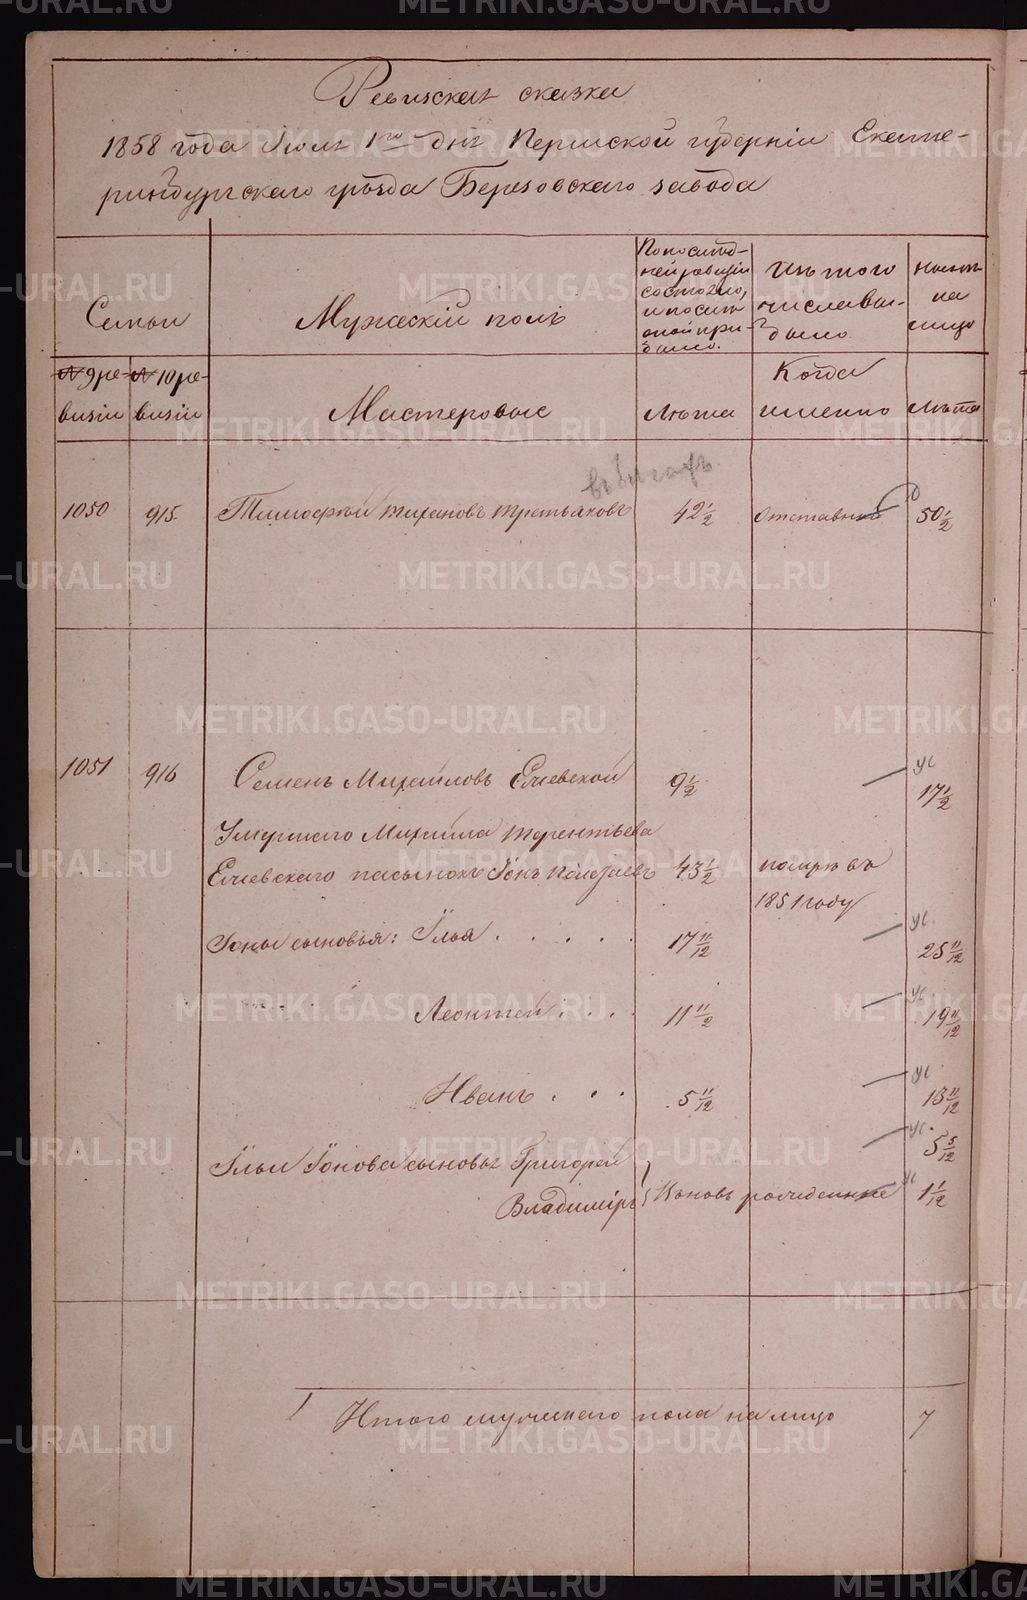 Ревизская сказка
1858 года Iюля 1го дня Пермской губернiи Екате-
ринбургского уѣзда Березовского завода
Семьи
Мужескiй полъ
По послѣд-
ней ревизiи
состояло,
и послѣ
оной при-
было.
Изъ того
числа вы-
было
Нынѣ
на
лицо
№ 9 ре-
визiи
№ 10 ре-
визiи
Мастеровые
Лѣта
Когда
именно
Лѣта
1050 915. Тимофей Тихановъ Третьяковъ 42 1/2 отставной 50 1/2
1051 916 Семенъ Михайловъ Елчевской 9 1/2 17 1/2
Умершего Михаила Терентьева
Елчевского пасынокъ Iонъ 43 1/2 помре въ
1851 году
Iоны сыновья: Илья . . . . . 17 11/12 25 11/12
Леонтей . . . . 11 11/12 19 11/12
Иванъ . . . 5 11/12 13 11/12
Ильи Iонова сыновья Григорей 5 5/12
Владимiръ вновь рожденные 1 1/12
Итого мужеского пола на лицо 7
METRIKI.GASO-URAL.RU